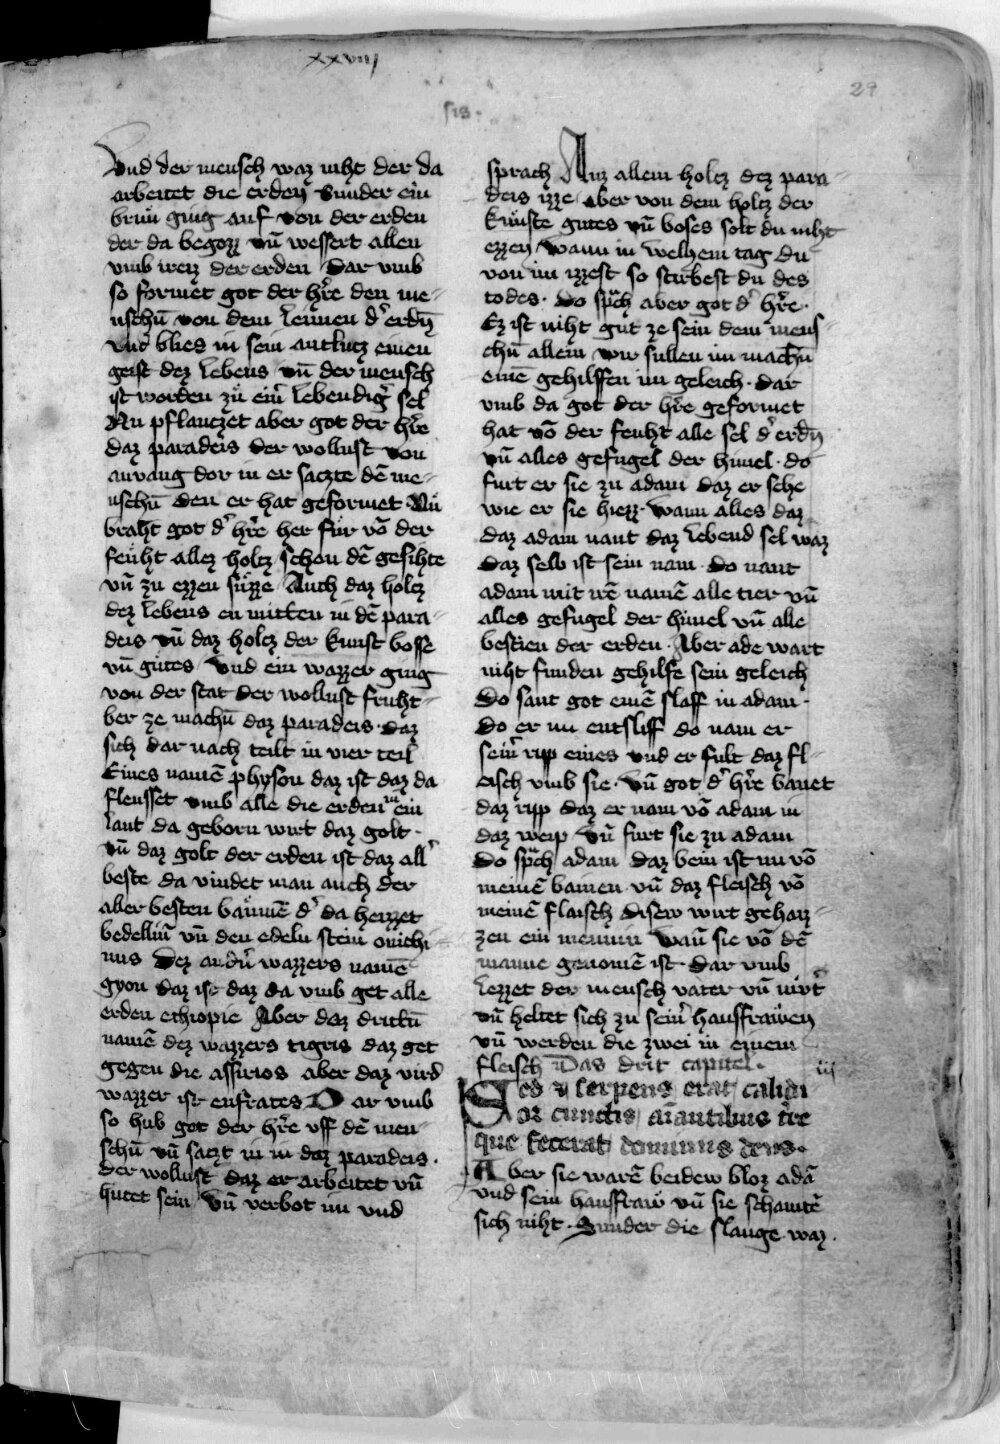 xxviiij
29
sis.
Vnd der mensch waz niht der da
arbeitet die erden Sunder ein
brun ging auf von der erden
der da begozz vn̄ wessert allen
vmb ireiz der erden Dar vmb
so formet got der hr̄e den me-
nschn̄ von dem leimen d' erdn̄
vnd blies in sein antlutz einen
geist dez lebens vn̄ der mensch
ist worden zu ein' lebendig' sel
Nu pflanczet aber got der hr̄e
daz paradeis der wollust von
anvang dor in er saczte dē me-
nschn̄ den er hat geformet Nu
braht got d' hr̄e her für vō der
feuht allez holcz schon dē gesihte
vn̄ zu ezzen süzze Auch daz holcz
dez lebens en mitten in dē para-
deis vn̄ daz holcz der kunst bosse
vn̄ gutes Vnd ein wazzer ging
von der stat der wollust fruht-
ber ze machn̄ daz paradeis daz
sich dar nach teilt in vier teil
Eines namē physon daz ist daz da
fleusset vmb alle die erden in ein
lant da geborn wirt daz golt
vn̄ daz golt der erden ist daz all'
beste da vindet man auch der
aller besten baumē d' da heizzet
bedellim̄ vn̄ den edeln stein onichi-
nus Dez andn̄ wazzers namē
gyon daz ist daz da vmb get alle
erden ethiopie Aber daz drittn̄
namē dez wazzers tigris daz get
gegen die assirios aber daz vird
wazzer ist eufrates Dar vmb
so hub got der hr̄e vff dē men-
schn̄ vn̄ saczt in in daz paradeis
der wollust daz er arbeitet vn̄
hutet sein Vn̄ verbot im vnd
sprach Auz allem holcz dez para-
deis izze Aber von dem holcz der
kunste gutes vn̄ boses solt du niht
ezzen Wann in welhem tag du
von im izzest so stirbest du des
todes. Do sp̄ch aber got d' hr̄e.
Ez ist niht gut ze sein dem mens-
chn̄ allein wir sullen im machn̄
einē gehilffen im geleich. dar
vmb da got der hr̄e geformet
hat vō der feuht alle sel d' erdn̄
vn̄ alles gefugel der himel. do
furt er sie zu adam daz er sehe
wie er sie hiezz. Wann alles daz
daz adam nant daz lebend sel waz
daz selb ist sein nam. do nant
adam mit irē namē alle tier vn̄
alles gefugel der himel vn̄ alle
bestien der erden. Aber ade wart
niht funden gehilfe sein geleich
Do sant got einē slaff in adam.
do er nu entsliff do nam er
sein' ripp eines vnd er fult daz fl-
eisch vmb sie. Vn̄ got d' hr̄e bauet
daz ripp daz er nam vō adam in
daz weip Vn̄ furt sie zu adam
Do sp̄ch adam daz bein ist nu vō
meinē bainen vn̄ daz fleisch vō
meinē flaisch Disew wirt gehaiz-
zen ein mennin Wan̄ sie vō dē
manne genomē ist. Dar vmb
lezzet der mensch vater vn̄ mut'
vn̄ heltet sich zu sein' hausfrawen
vn̄ werden die zwei in einem
fleisch Das drit capitel. iij
Sed et serpens erat calidi
or cunctis aīantibus t're
que fecerat dominus deus.
Aber sie warē beidew bloz adā
vnd sein hausfraw vn̄ sie schamtē
sich niht. Sunder die slange waz.